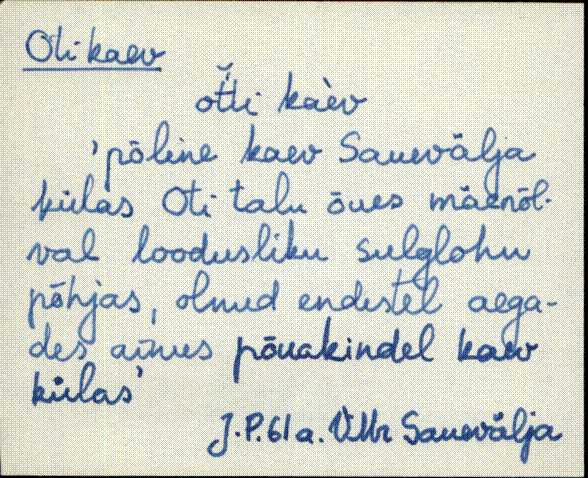 Oti kaev
otˇti kàev
'põline kaev Sauevälja
külas Oti talu õues mäenõl-
val loodusliku sulglohu
põhjas, olnud endistel aega-
des ainus põuakindel kaev
külas'
J.P. 61 a. VMr Sauevälja